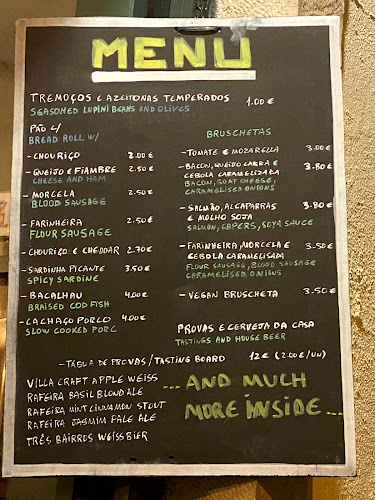 MENU
TREMOÇOS E AZEITONAS TEMPERADOS 1.00 €
SEASONED LUPINI BEANS AND OLIVES
PÃO C/
BREAD ROLL W/
- CHOURIÇO 2.00 €
- QUEIJO E FIAMBRE 2.50 €
CHEESE AND HAM
- MORCELA 2.50 €
BLOOD SAUSAGE
- FARINHEIRA 2.50 €
FLOUR SAUSAGE
- CHOURIÇO E CHEDDAR 2.70 €
- SARDINHA PICANTE 3.50 €
SPICY SARDINE
- BACALHAU 4.00 €
BRAISED COD FISH
- CACHAÇO PORCO 4.00 €
SLOW COOKED PORC
BRUSCHETAS
- TOMATE E MOZARELLA 3.00 €
- BACON, QUEIJO CABRA E 3.80 €
CEBOLA CARAMELIZADA
BACON, GOAT CHEESE,
CARAMELISED ONIONS
- SALMÃO, ALCAPARRAS 3.80 €
E MOLHO SOJA
SALMON, CAPERS, SOYA SAUCE
- FARINHEIRA, MORCELA E 3.50 €
CEBOLA CARAMELISADA
FLOUR SAUSAGE, BLOOD SAUSAGE
CARAMELISED ONIONS
- VEGAN BRUSCHETA 3.50 €
PROVAS E CERVEJA DA CASA
TASTINGS AND HOUSE BEER
- TÁBUA DE PROVAS/TASTING BOARD 12 € (2.00 €/UN)
VILLA CRAFT APPLE WEISS
RAFEIRA BASIL BLOND ALE
RAFEIRA MINT CINNAMON STOUT
RAFEIRA JASMIM PALE ALE
TRÊS BAIRROS WEISSBIER
... AND MUCH
MORE INSIDE...